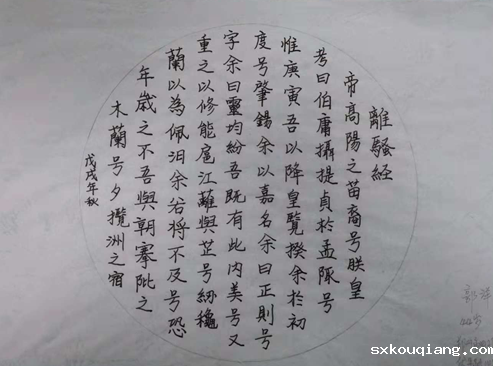 離騷經
帝高陽之苗裔号朕皇
考曰伯庸攝提貞於孟陬号
惟庚寅吾以降皇覽揆余於初
度号肇錫余以嘉名余曰正則号
字余曰靈均紛吾既有此内美号又
重之以修能扈江蘺與芷号紉穐
蘭以為佩汨余若将不及号恐
年歲之不吾與朝搴阰之
木蘭号夕攬洲之宿
戊戌年秋
sxkouqiang.com